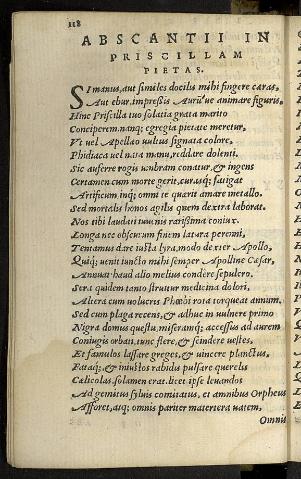 118
ABSCANTII IN
PRISCILLAM
PIETAS.
SI manus, aut similes docilis mihi fingere caras,
Aut ebur, impressis Auru'ue animare figuris,
Hinc Priscilla tuo solatia grata marito
Conciperem. nanq; egregia pietate meretur,
Vt uel Apelleo uultus signata colore,
Phidiaca uel nata manu, reddare dolenti.
Sic auferre rogis umbram conatur, & ingens
Certamen cum morte gerit, curasq; fatigat
Artificum, inq; omni te quærit amare metallo.
Sed mortalis honos agilis quem dextra laborat.
Nos tibi laudati iuuenis rarissima coniux
Longa nec obscurum finem latura perenni,
Tentamus dare iusta lyra, modo dexter Apollo,
Quiq; uenit iuncto mihi semper Apolline Cæsar,
Annuat. haud alio melius condere sepulcro.
Sera quidem tanto struitur medicina dolori,
Altera cum uolucris Phœbi rota torqueat annum.
Sed cum plaga recens, & adhuc in uulnere primo
Nigra domus questu, miseramq; accessus ad aurem
Coniugis orbati, tunc flere, & scindere uestes,
Et famulos lassare greges, & uincere planctus,
Fataq; & iniustos rabidis pulsare querelis
Cælicolas, solamen erat. licet ipse leuandos
Ad gemitus syluis comitatus, et amnibus Orpheus
Afforet, atq; omnis pariter matertera uatem,
Omnis